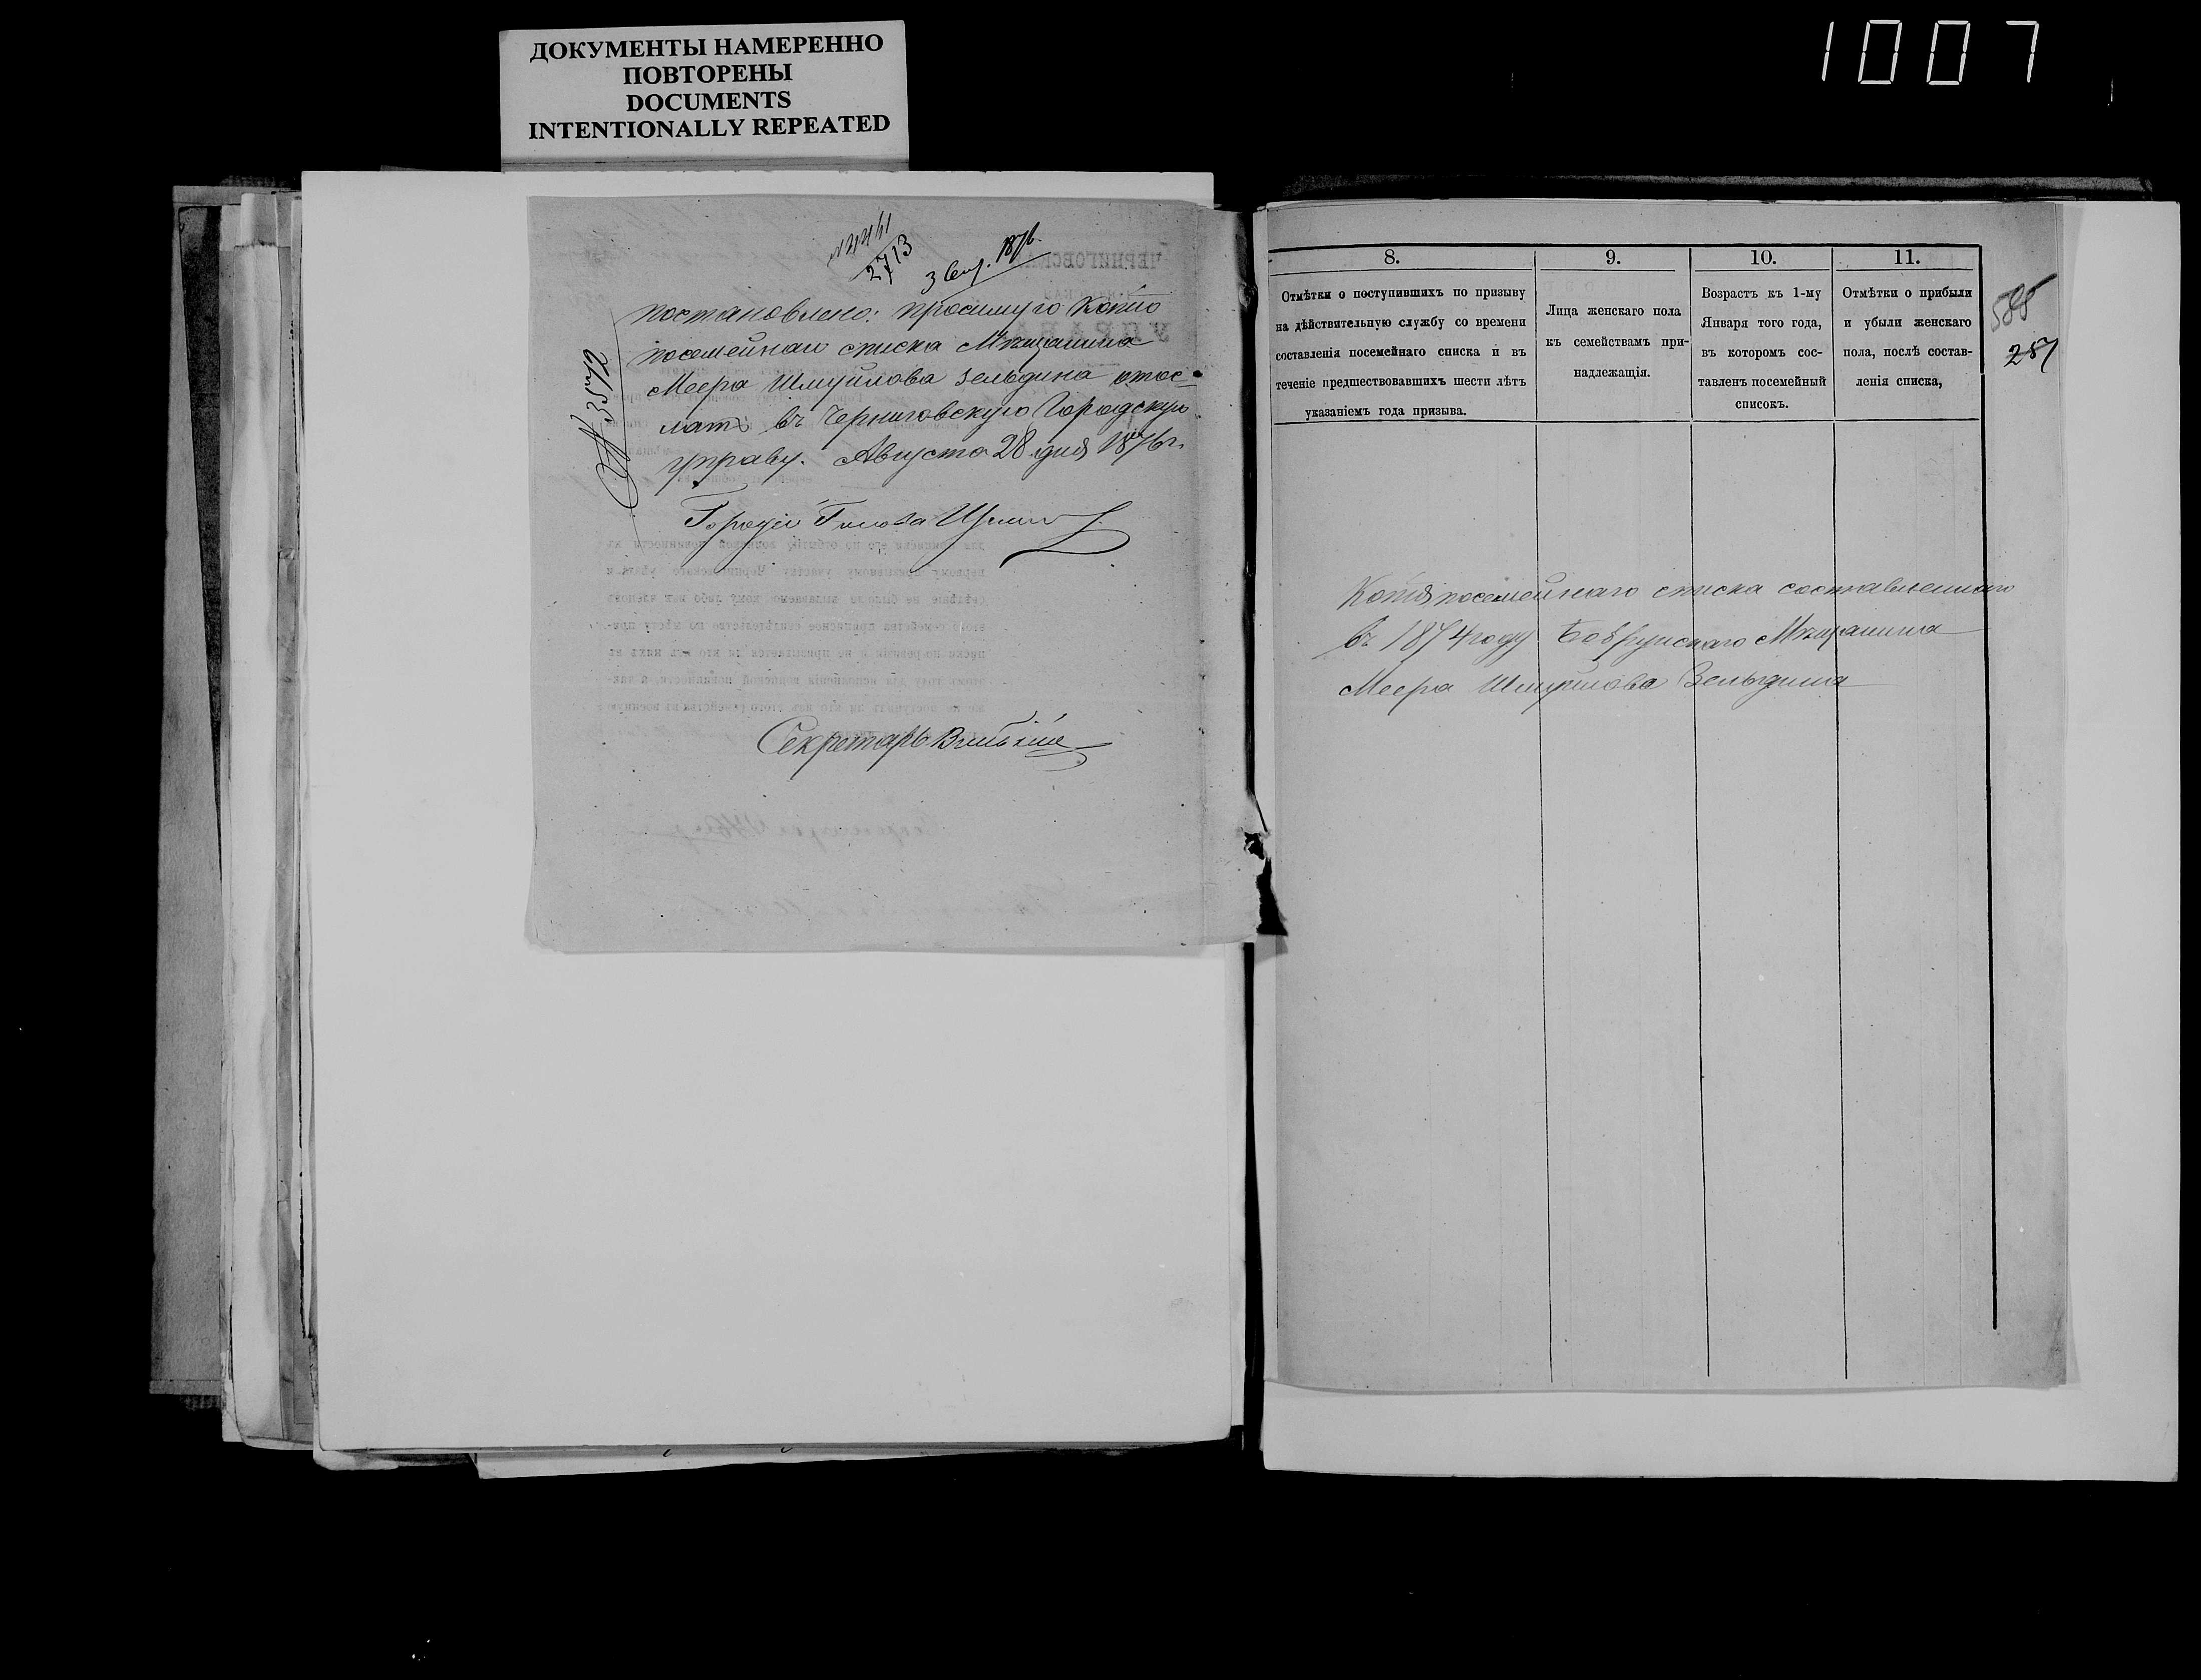 ДОКУМЕНТЫ НАМЕРЕННО
ПОВТОРЕНЫ
DOCUMENTS
INTENTIONALLY REPEATED
1007
2713
3 Сен. 1876.
постановлено: просимую копію
посемейнаго списка Мѣщанина
Меера Шмуйлова Зельдина отос-
лать въ Черниговскую Городскую
управу. Августа 28 дня 1876 г.
Городской Голова
Секретарь
8.
Отмѣтки о поступившихъ по призыву
на дѣйствительную службу со времени
составленія посемейнаго списка и въ
теченіе предшествовавшихъ шести лѣтъ
указаніемъ года призыва.
9.
Лица женскаго пола
къ семействамъ при-
надлежащія.
10.
Возрастъ къ 1-му
Января того года,
въ которомъ сос-
тавленъ посемейный
списокъ.
11.
Отмѣтки о прибыли
и убыли женскаго
пола, послѣ состав-
ленія списка,
585
257
Копія посемейнаго списка составленнаго
въ 1874 году Бобруйскаго Мѣщанина
Меера Шмуйлова Зельдина